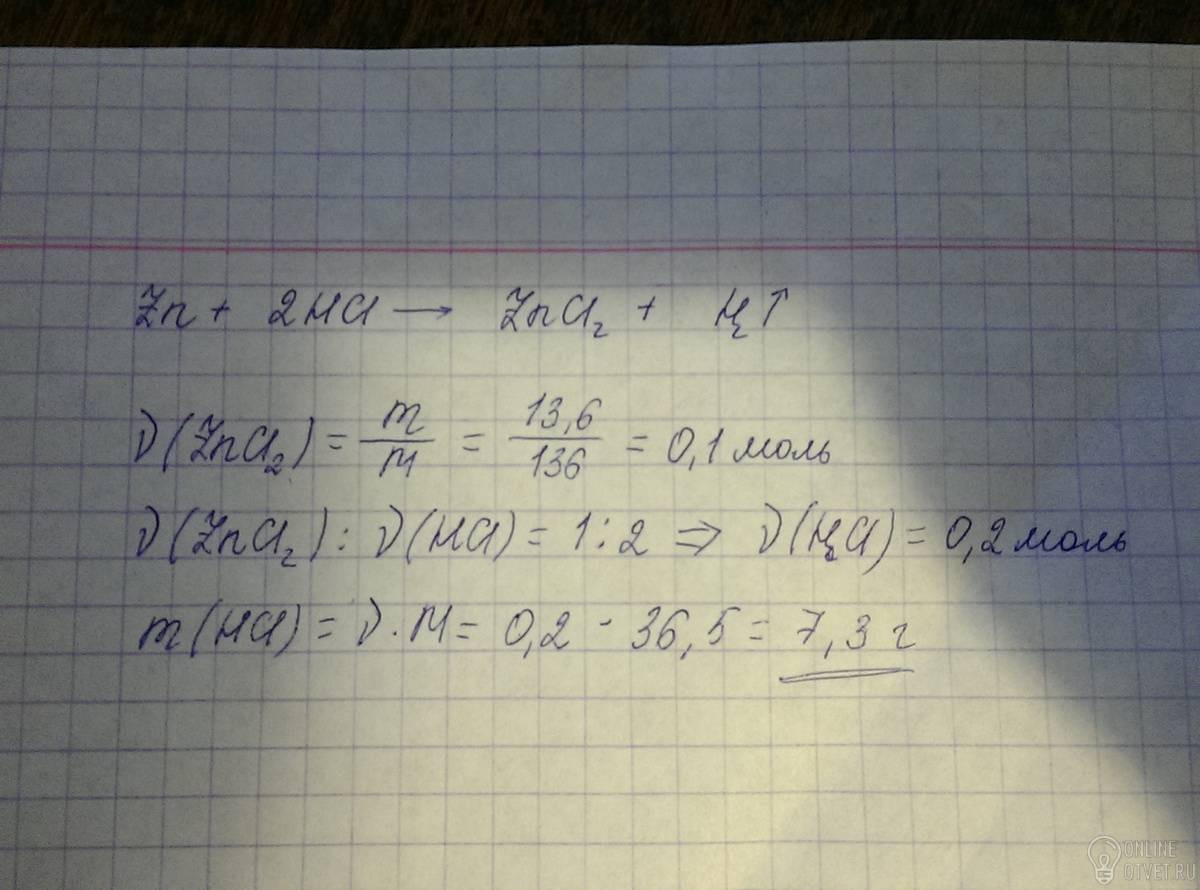 Zn + 2HCl → ZnCl₂ + H₂↑
ν(ZnCl₂) = m/M = 13,6/136 = 0,1 моль
ν(ZnCl₂) : ν(HCl) = 1:2 ⇒ ν(H₂Cl) = 0,2 моль
m(HCl) = ν · M = 0,2 · 36,5 = 7,3 г
ONLINE
OTVET.RU